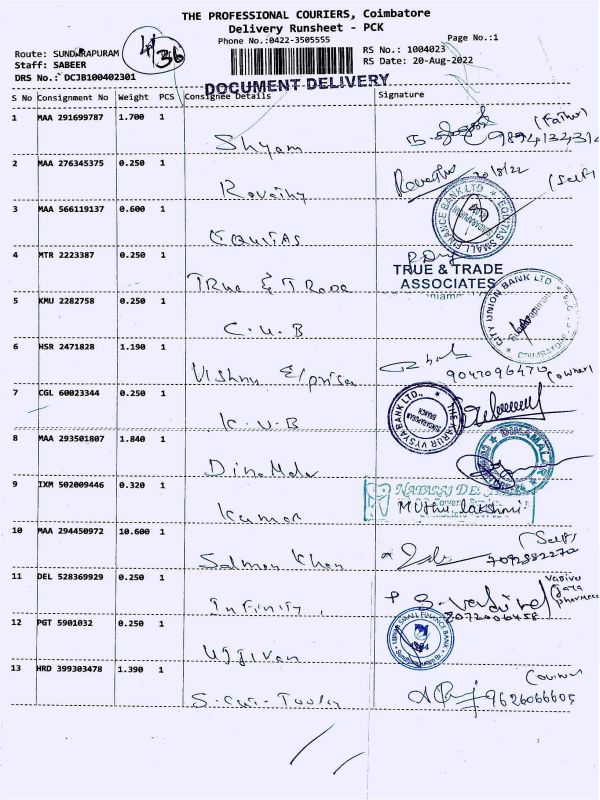 THE PROFESSIONAL COURIERS, Coimbatore
Delivery Runsheet - PCK
Phone No.:0422-3505555
Page No.:1
Route: SUNDARAPURAM
RS No.: 1004023
Staff: SABEER
RS Date: 20-Aug-2022
DRS No.: DCJB100402301
4/36
DOCUMENT DELIVERY
S No Consignment No Weight PCS Consignee Details Signature
1 MAA 291699787 1.700 1 Shyam (Father)
2 MAA 276345375 0.250 1 Revathy Revathy 20/8/22 (Self)
3 MAA 566119137 0.600 1 EQUITAS EQUITAS SMALL FINANCE BANK LTD
4 MTR 2223387 0.250 1 True & Trade TRUE & TRADE
ASSOCIATES
5 KMU 2282758 0.250 1 C.U.B CITY UNION BANK LTD COIMBATORE
6 HSR 2471828 1.190 1 Vishnu E/prise 9047096470 (owner)
7 CGL 60023344 0.250 1 K.V.B THE KARUR VYSYA BANK LTD., BRANCH
8 MAA 293501807 1.840 1 DINAMALAR
9 IXM 502009446 0.320 1 Kumar Muthu lakshmi
10 MAA 294450972 10.600 1 Salman Khan (Self) 7092882270
11 DEL 528369929 0.250 1 Infinity 8072006458
12 PGT 5901032 0.250 1 Ujjivan UJJIVAN SMALL FINANCE BANK
13 HRD 399303478 1.390 1 9626066605